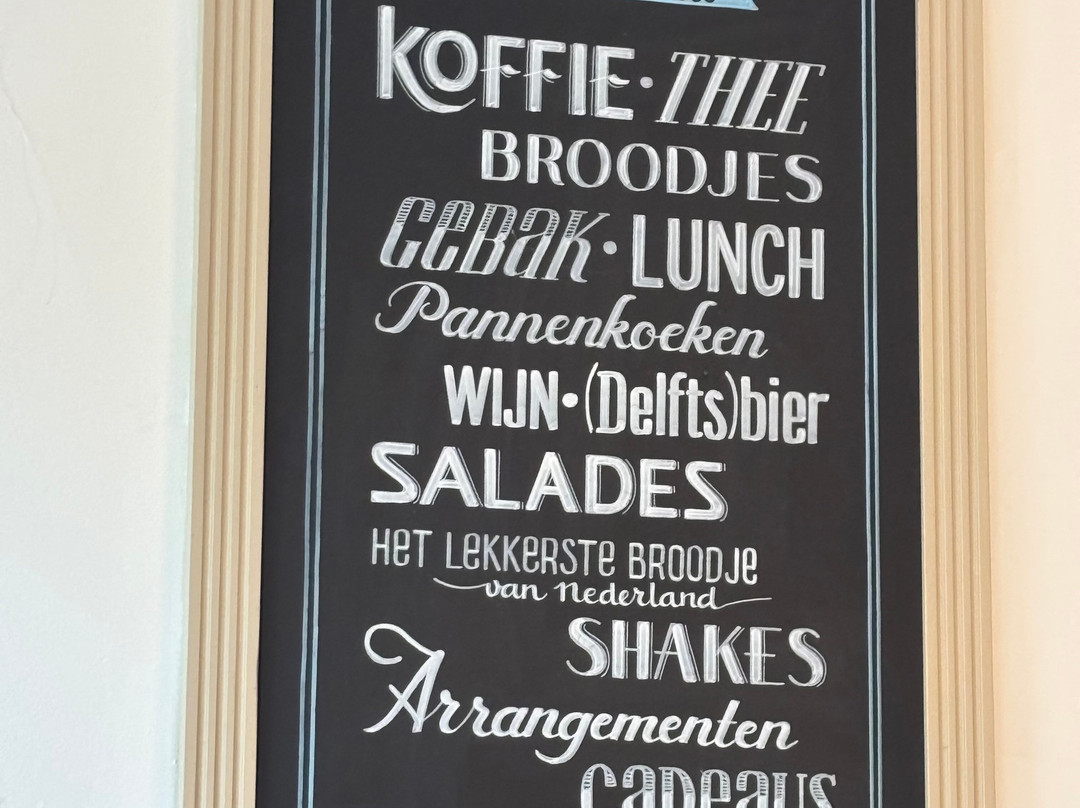 KOFFIE · THEE
BROODJES
GEBAK · LUNCH
Pannenkoeken
WIJN · (Delfts)bier
SALADES
HET LEKKERSTE BROODJE
van Nederland
SHAKES
Arrangementen
CADEAUS